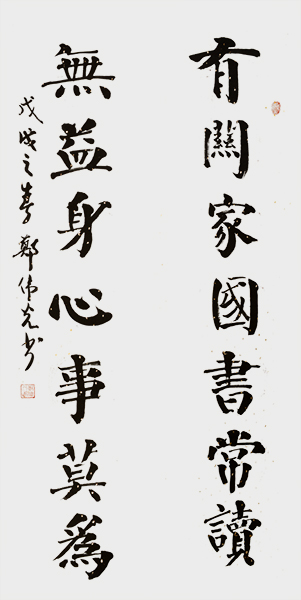 有關家國書常讀
無益身心事莫為
戊戌之春鄭偉克書